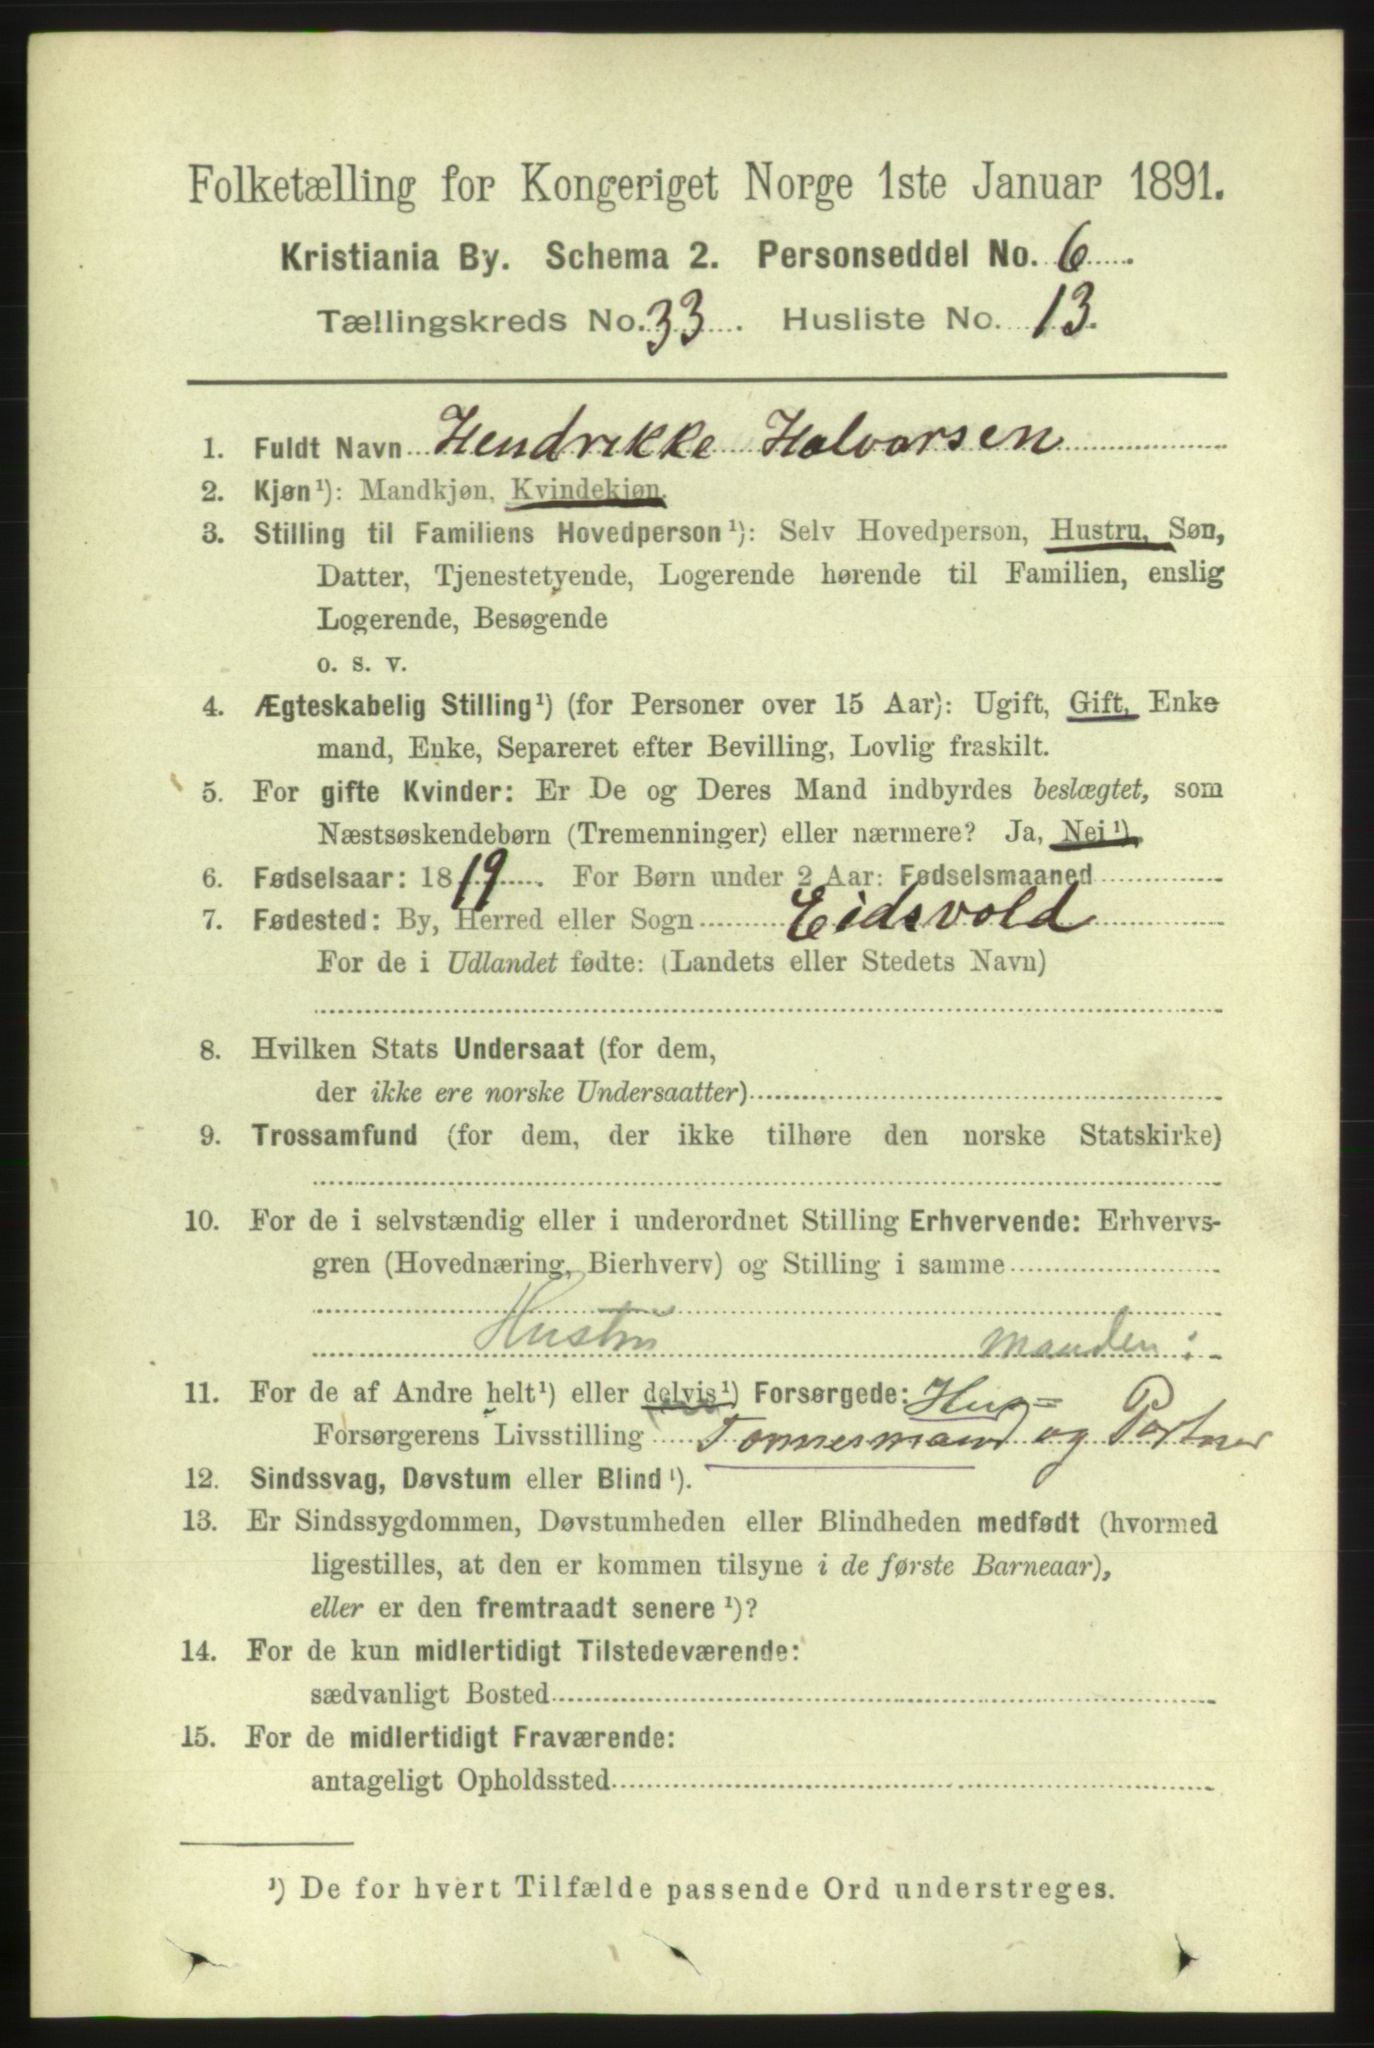 Folketælling for Kongeriget Norge 1ste Januar 1891.
Kristiania By. Schema 2. Personseddel No. 6.
Tællingskreds No. 33. Husliste No. 13.
1. Fuldt Navn Hendrikke Halvorsen
2. Kjøn¹): Mandkjøn, Kvindekjøn.
3. Stilling til Familiens Hovedperson¹): Selv Hovedperson, Hustru, Søn,
Datter, Tjenestetyende, Logerende hørende til Familien, enslig
Logerende, Besøgende
o. s. v.
4. Ægteskabelig Stilling¹) (for Personer over 15 Aar): Ugift, Gift, Enke
mand, Enke, Separeret efter Bevilling, Lovlig fraskilt.
5. For gifte Kvinder: Er De og Deres Mand indbyrdes beslægtet, som
Næstsøskendebørn (Tremenninger) eller nærmere? Ja, Nei¹).
6. Fødselsaar: 1819. For Børn under 2 Aar: Fødselsmaaned
7. Fødested: By, Herred eller Sogn Eidsvold
For de i Udlandet fødte: (Landets eller Stedets Navn)
8. Hvilken Stats Undersaat (for dem,
der ikke ere norske Undersaatter)
9. Trossamfund (for dem, der ikke tilhøre den norske Statskirke)
10. For de i selvstændig eller i underordnet Stilling Erhvervende: Erhvervs-
gren (Hovednæring, Bierhverv) og Stilling i samme
Hustru manden:
11. For de af Andre helt¹) eller delvis¹) Forsørgede: Hus=
Forsørgerens Livsstilling Tømmermand og Portner
12. Sindssvag, Døvstum eller Blind¹).
13. Er Sindssygdommen, Døvstumheden eller Blindheden medfødt (hvormed
ligestilles, at den er kommen tilsyne i de første Barneaar),
eller er den fremtraadt senere¹)?
14. For de kun midlertidigt Tilstedeværende:
sædvanligt Bosted
15. For de midlertidigt Fraværende:
antageligt Opholdssted
¹) De for hvert Tilfælde passende Ord understreges.